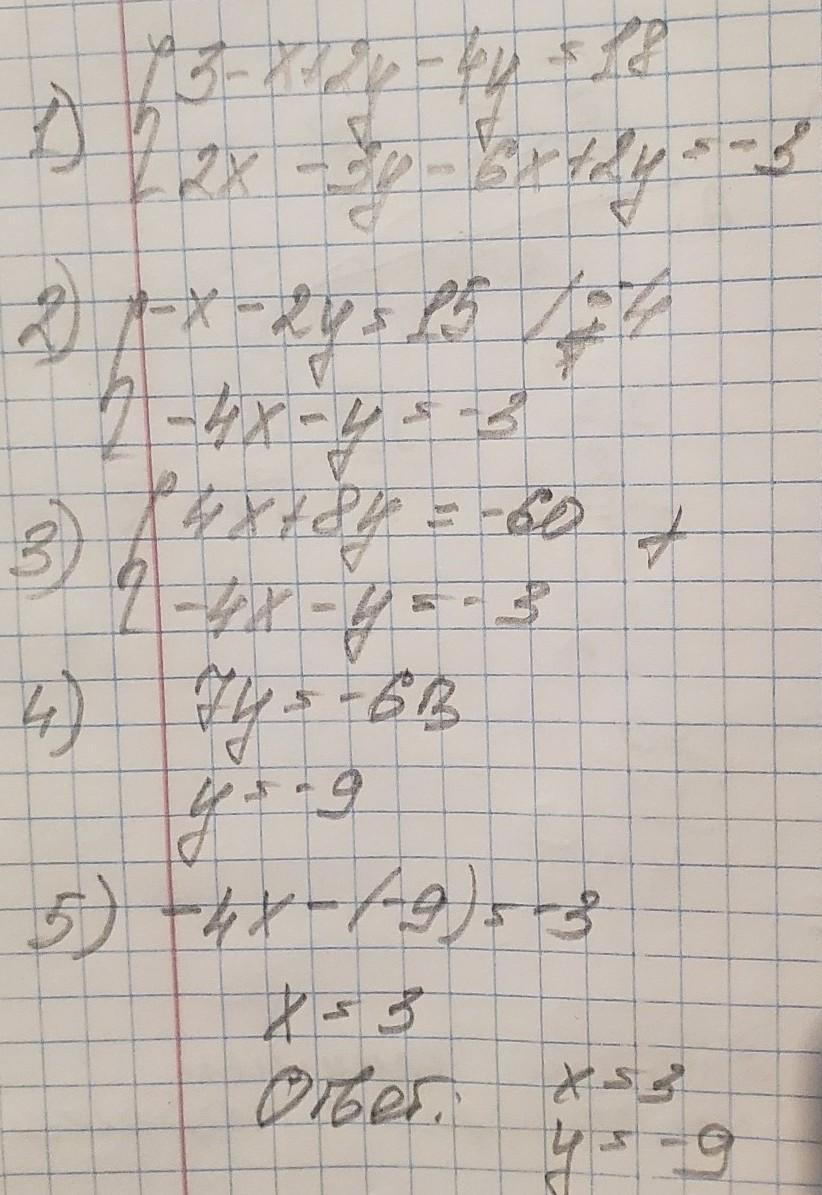 1) { 3 - x + 2y - 4y = 18
2x - 3y - 6x + 2y = -3
2) { -x - 2y = 15 / -4
-4x - y = -3
3) { 4x + 8y = -60 +
-4x - y = -3
4) 7y = -63
y = -9
5) -4x - (-9) = -3
x = 3
Ответ: x = 3
y = -9